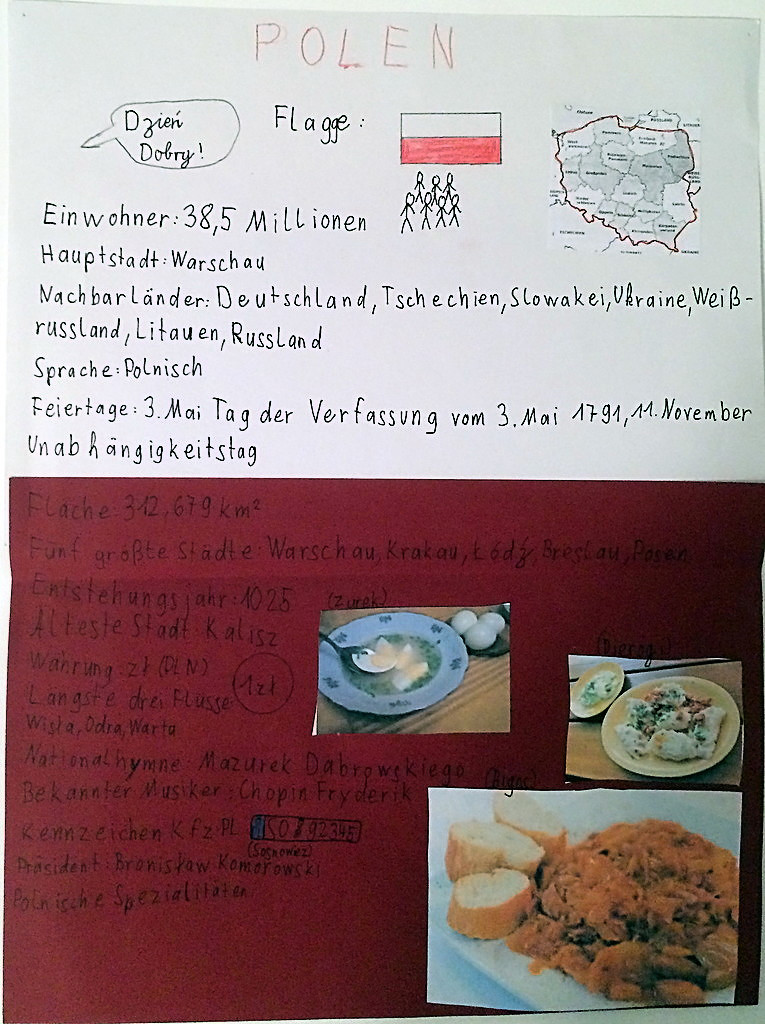 POLEN
Dzień
Dobry!
Flagge:
Einwohner: 38,5 Millionen
Hauptstadt: Warschau
Nachbarländer: Deutschland, Tschechien, Slowakei, Ukraine, Weiß-
russland, Litauen, Russland
Sprache: Polnisch
Feiertage: 3. Mai Tag der Verfassung vom 3. Mai 1791, 11. November
Unabhängigkeitstag
Fläche: 312,679 km²
Fünf größte Städte: Warschau, Krakau, Łódź, Breslau, Posen
Entstehungsjahr: 1025
(Żurek)
Älteste Stadt: Kalisz
(Pierogi)
Währung: zł (PLN)
1 zł
Längste drei Flüsse:
Wisła, Odra, Warta
Nationalhymne: Mazurek Dąbrowskiego
(Bigos)
Bekannter Musiker: Chopin Fryderik
Kennzeichen Kfz: PL
(Sosnowiec)
Präsident: Bronisław Komorowski
Polnische Spezialitäten: